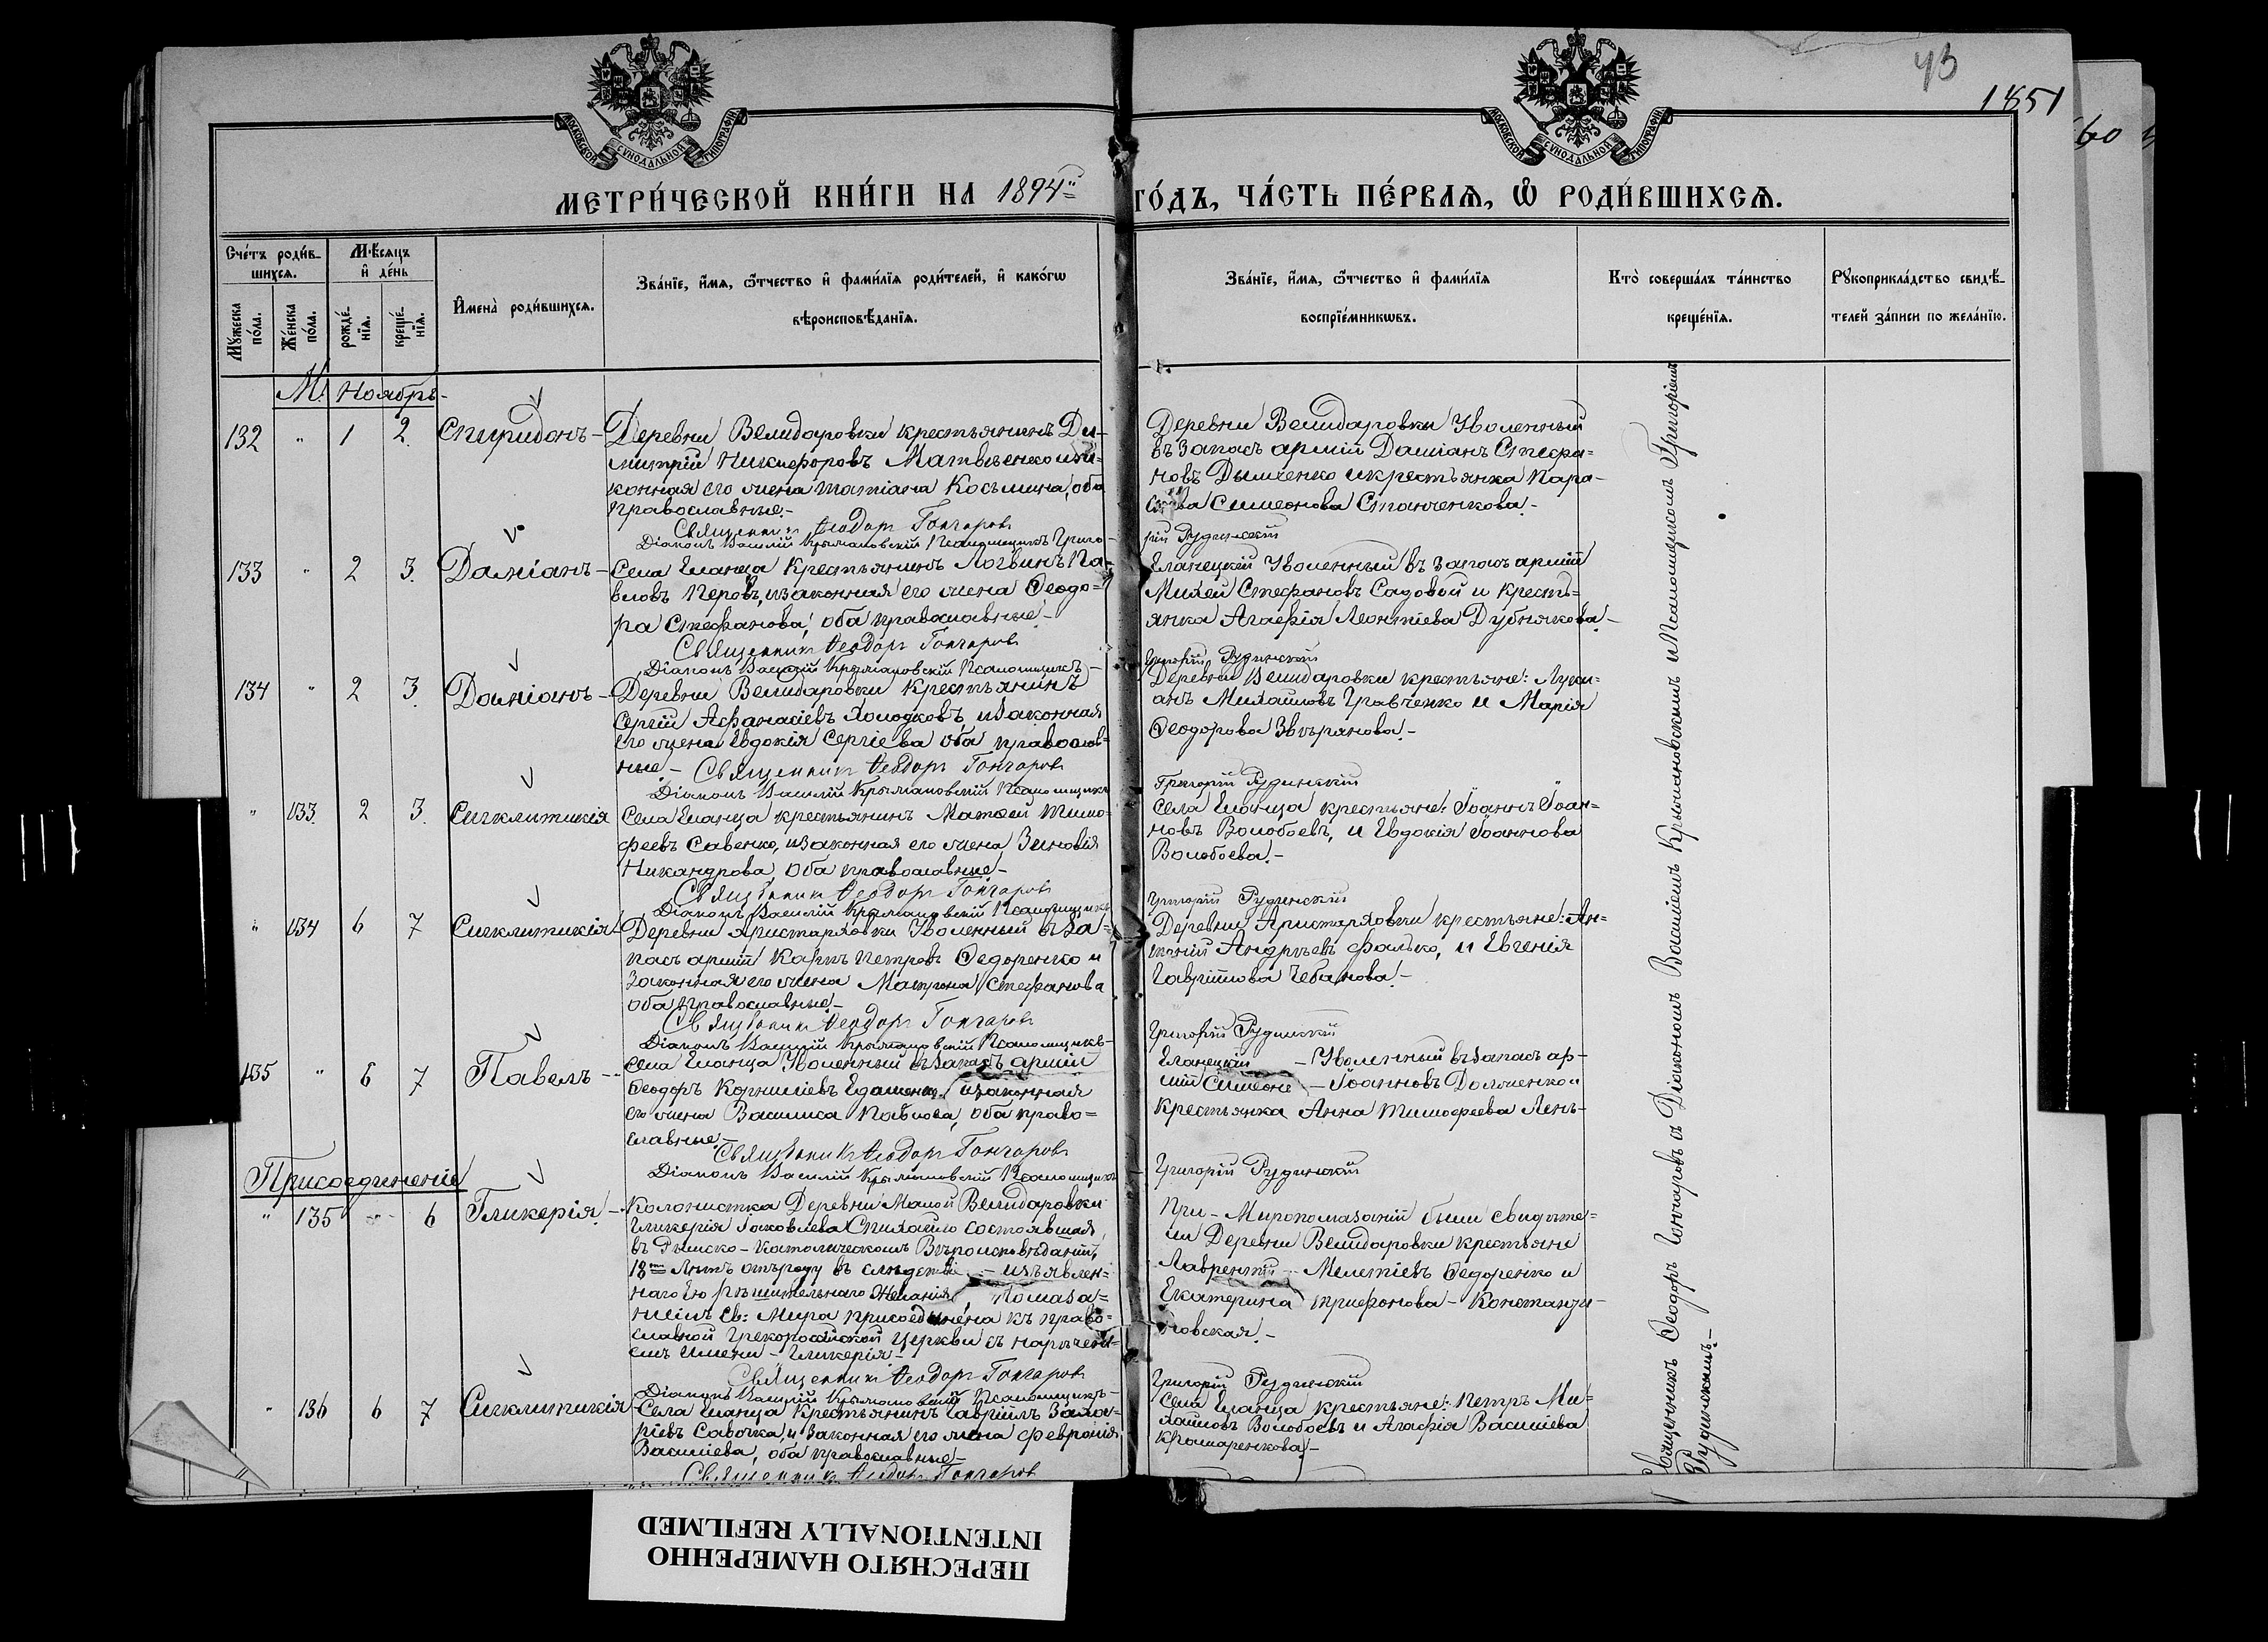 43
1851
60
МОСКОВСКОЙ СѴНОДАЛЬНОЙ ТИПОГРАФІИ
МОСКОВСКОЙ СѴНОДАЛЬНОЙ ТИПОГРАФІИ
МЕТРИ́ЧЕСКОЙ КНИ́ГИ НА 1894й ГО́ДЪ, ЧА́СТЬ ПЕ́РВАѦ, Ѽ РОДИ́ВШИХСѦ.
Сче́тъ роди́в-
шихсѧ.
Мꙋ́жеска по́ла.
Же́нска по́ла.
Мѣ́сѧцъ и҆ де́нь
рожде́-нїѧ.
креще́-нїѧ.
И҆мена̀ роди́вшихсѧ.
Зва́нїе, и҆́мѧ, ѻ҆́тчество и҆ фами́лїѧ роди́телей, и҆ како́гѡ
вѣроисповѣ́данїѧ.
Зва́нїе, и҆́мѧ, ѻ҆́тчество и҆ фами́лїѧ
воспрїе́мникѡвъ.
Кто̀ соверша́лъ та́инство
креще́нїѧ.
Рꙋкоприкла́дство свидѣ́-
телей за́писи по жела́нїю.
М. Ноябрь-
132 " 1 2. Спиридонъ-
Деревни Велидаровки крестьянинъ Ди-
митрій Никифоровъ Матвѣенко и за-
конная его жена Татіана Косьмина, оба
православные.-
Священникъ Ѳеодоръ Гончаровъ
Діаконъ Василій Крыжановскій Псаломщикъ Григо-
рій Рудинскій
Деревни Велидаровки Уволенный
въ запасъ арміи Даміанъ Стефа-
новъ Дымченко и крестьянка Пара-
скева Симеонова Станченкова.-
133 " 2 3. Даміанъ-
Села Еланца Крестьянинъ Логвинъ Па-
вловъ Перовъ, и законная его жена Ѳеодо-
ра Стефанова, оба православные.-
Священникъ Ѳеодоръ Гончаровъ
Діаконъ Василій Крыжановскій Псаломщикъ-
Григорій Рудинскій
Еланецкій Уволенный въ запасъ арміи
Михей Стефановъ Садовой и Кресть-
янка Агафія Леонтіева Дубнякова.-
134 " 2 3. Даміанъ-
Деревни Велидаровки Крестьянинъ
Сергій Аѳанасіевъ Холодковъ, и законная
его жена Евдокія Сергіева оба православ-
ные.- Священникъ Ѳеодоръ Гончаровъ
Діаконъ Василій Крыжановскій Псаломщикъ
Григорій Рудинскій
Деревни Велидаровки крестьяне: Луки-
анъ Михайловъ Кравченко и Марія
Ѳеодорова Звѣрянова.-
" 133. 2 3. Сигклитикія
Села Еланца крестьянинъ Матѳей Тимо-
феевъ Савенко, и законная его жена Зиновія
Никандрова, оба православные.-
Священникъ Ѳеодоръ Гончаровъ
Діаконъ Василій Крыжановскій Псаломщикъ
Григорій Рудинскій
Села Еланца крестьяне: Іоаннъ Іоан-
новъ Волобоевъ, и Евдокія Іоаннова
Волобоева.-
" 134 6 7 Сигклитикія
Деревни Аристарховки Уволенный въ за-
пасъ арміи Карпъ Петровъ Ѳедоренко и
законная его жена Матрона Стефанова
оба православные.-
Священникъ Ѳеодоръ Гончаровъ
Діаконъ Василій Крыжановскій Псаломщикъ-
Григорій Рудинскій
Деревни Аристарховки крестьяне: Ан-
тоній Андреевъ Фалько, и Евгенія
Гавріилова Чебанова.-
135 " 6 7 Павелъ-
Села Еланца Уволенный въ запасъ арміи
Ѳеодоръ Корниліевъ и законная
его жена Василиса Павлова, оба право-
славные.-
Священникъ Ѳеодоръ Гончаровъ
Діаконъ Василій Крыжановскій Псаломщикъ
Григорій Рудинскій
Еланецкій - Уволенный въ запасъ ар-
міи Симеонъ - Іоанновъ Долженко и
Крестьянка Анна Тимофеева Лень-
Присоединеніе
" 135 " 6 Гликерія.-
Колонистка Деревни Малой Велидаровки
Гликерія Іаковлева состоявшая
въ Римско-католическомъ Вѣроисповѣданіи,
18ти лѣтъ отъ роду въ слѣдствіе - изъявлен-
наго Ею рѣшительнаго Желанія, помаза-
ніемъ Св: Мира присоединена къ право-
славной Грекороссійской Церкви съ нареченi-
емъ Имени - Гликерія.-
Священникъ Ѳеодоръ Гончаровъ
Діаконъ Василій Крыжановскій Псаломщикъ-
Григорій Рудинскій
При - Миропомазаніи были свидѣте-
ли Деревни Велидаровки крестьяне
Лаврентій - Мелетіевъ Ѳедоренко и
Екатерина Трифонова - Константи-
новская.-
" 136 6 7 Сигклитикія
Села Еланца Крестьянинъ Гавріилъ Заха-
ріевъ Савочка, и законная его жена Февронія
Василіева, оба православные.-
Священникъ Ѳеодоръ Гончаровъ
Села Еланца крестьяне: Петръ Ми-
хайловъ Волобоевъ и Агафія Василіева
Крамаренкова.-
Священникъ Ѳеодоръ Гончаровъ съ Діакономъ Василіемъ Крыжановскимъ и Псаломщикомъ Григоріемъ
Рудинскимъ.-
ПЕРЕСНЯТО НАМЕРЕННО
INTENTIONALLY REFILMED